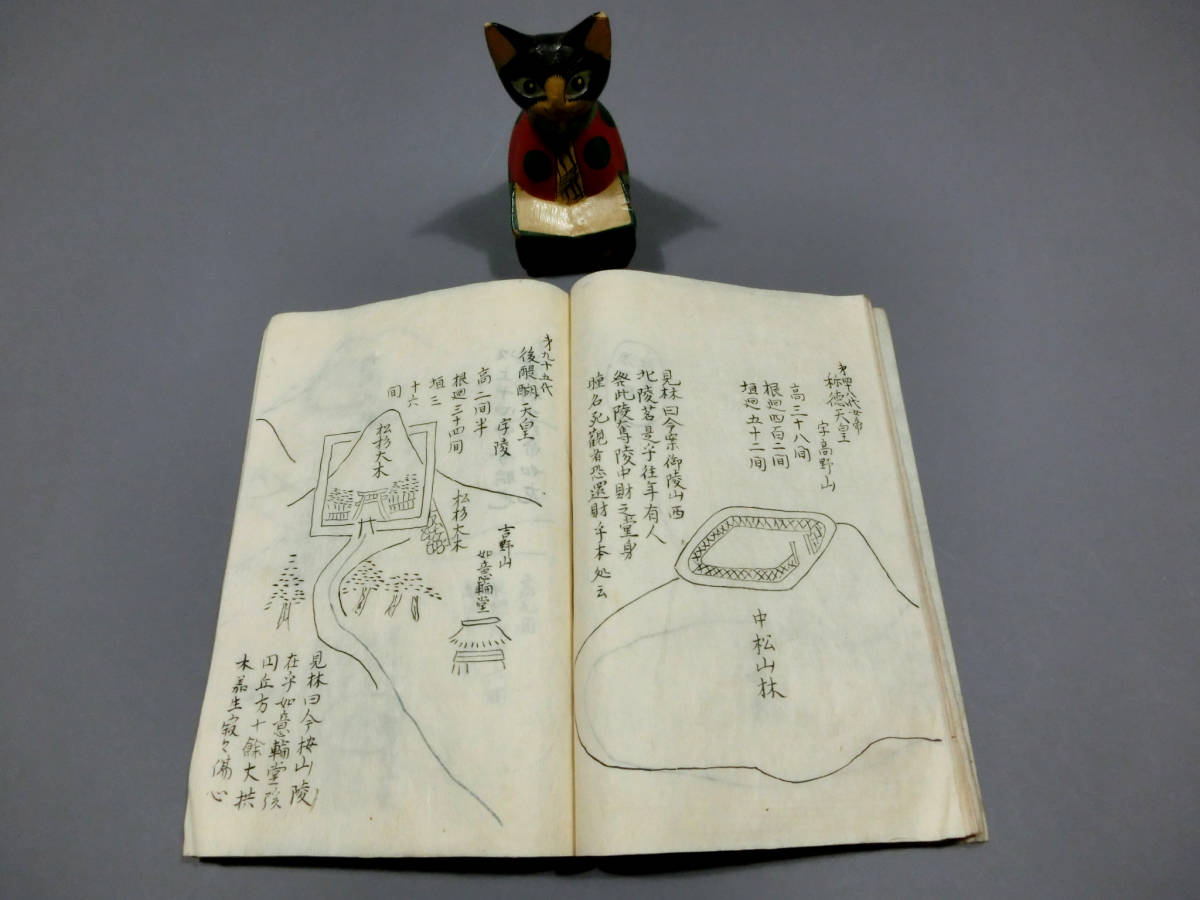 才四十八代女帝
称徳天皇
字高野山
高三十八间
根廻四百二间
垣廻五十二间
見林曰今案御陵山西
北陵茗是乎往年有人
発此陵奪陵中財之堂身
腫名死観者恐還財乎本処云
中松山林
才九十五代
後醍醐天皇
字陵
高二间半
根廻三十四间
垣三
十六
间
松杉大木
松杉大木
吉野山
如意輪堂
見林曰今按山陵
在乎如意輪堂
円丘方十餘大拱
木森生寂々傷心